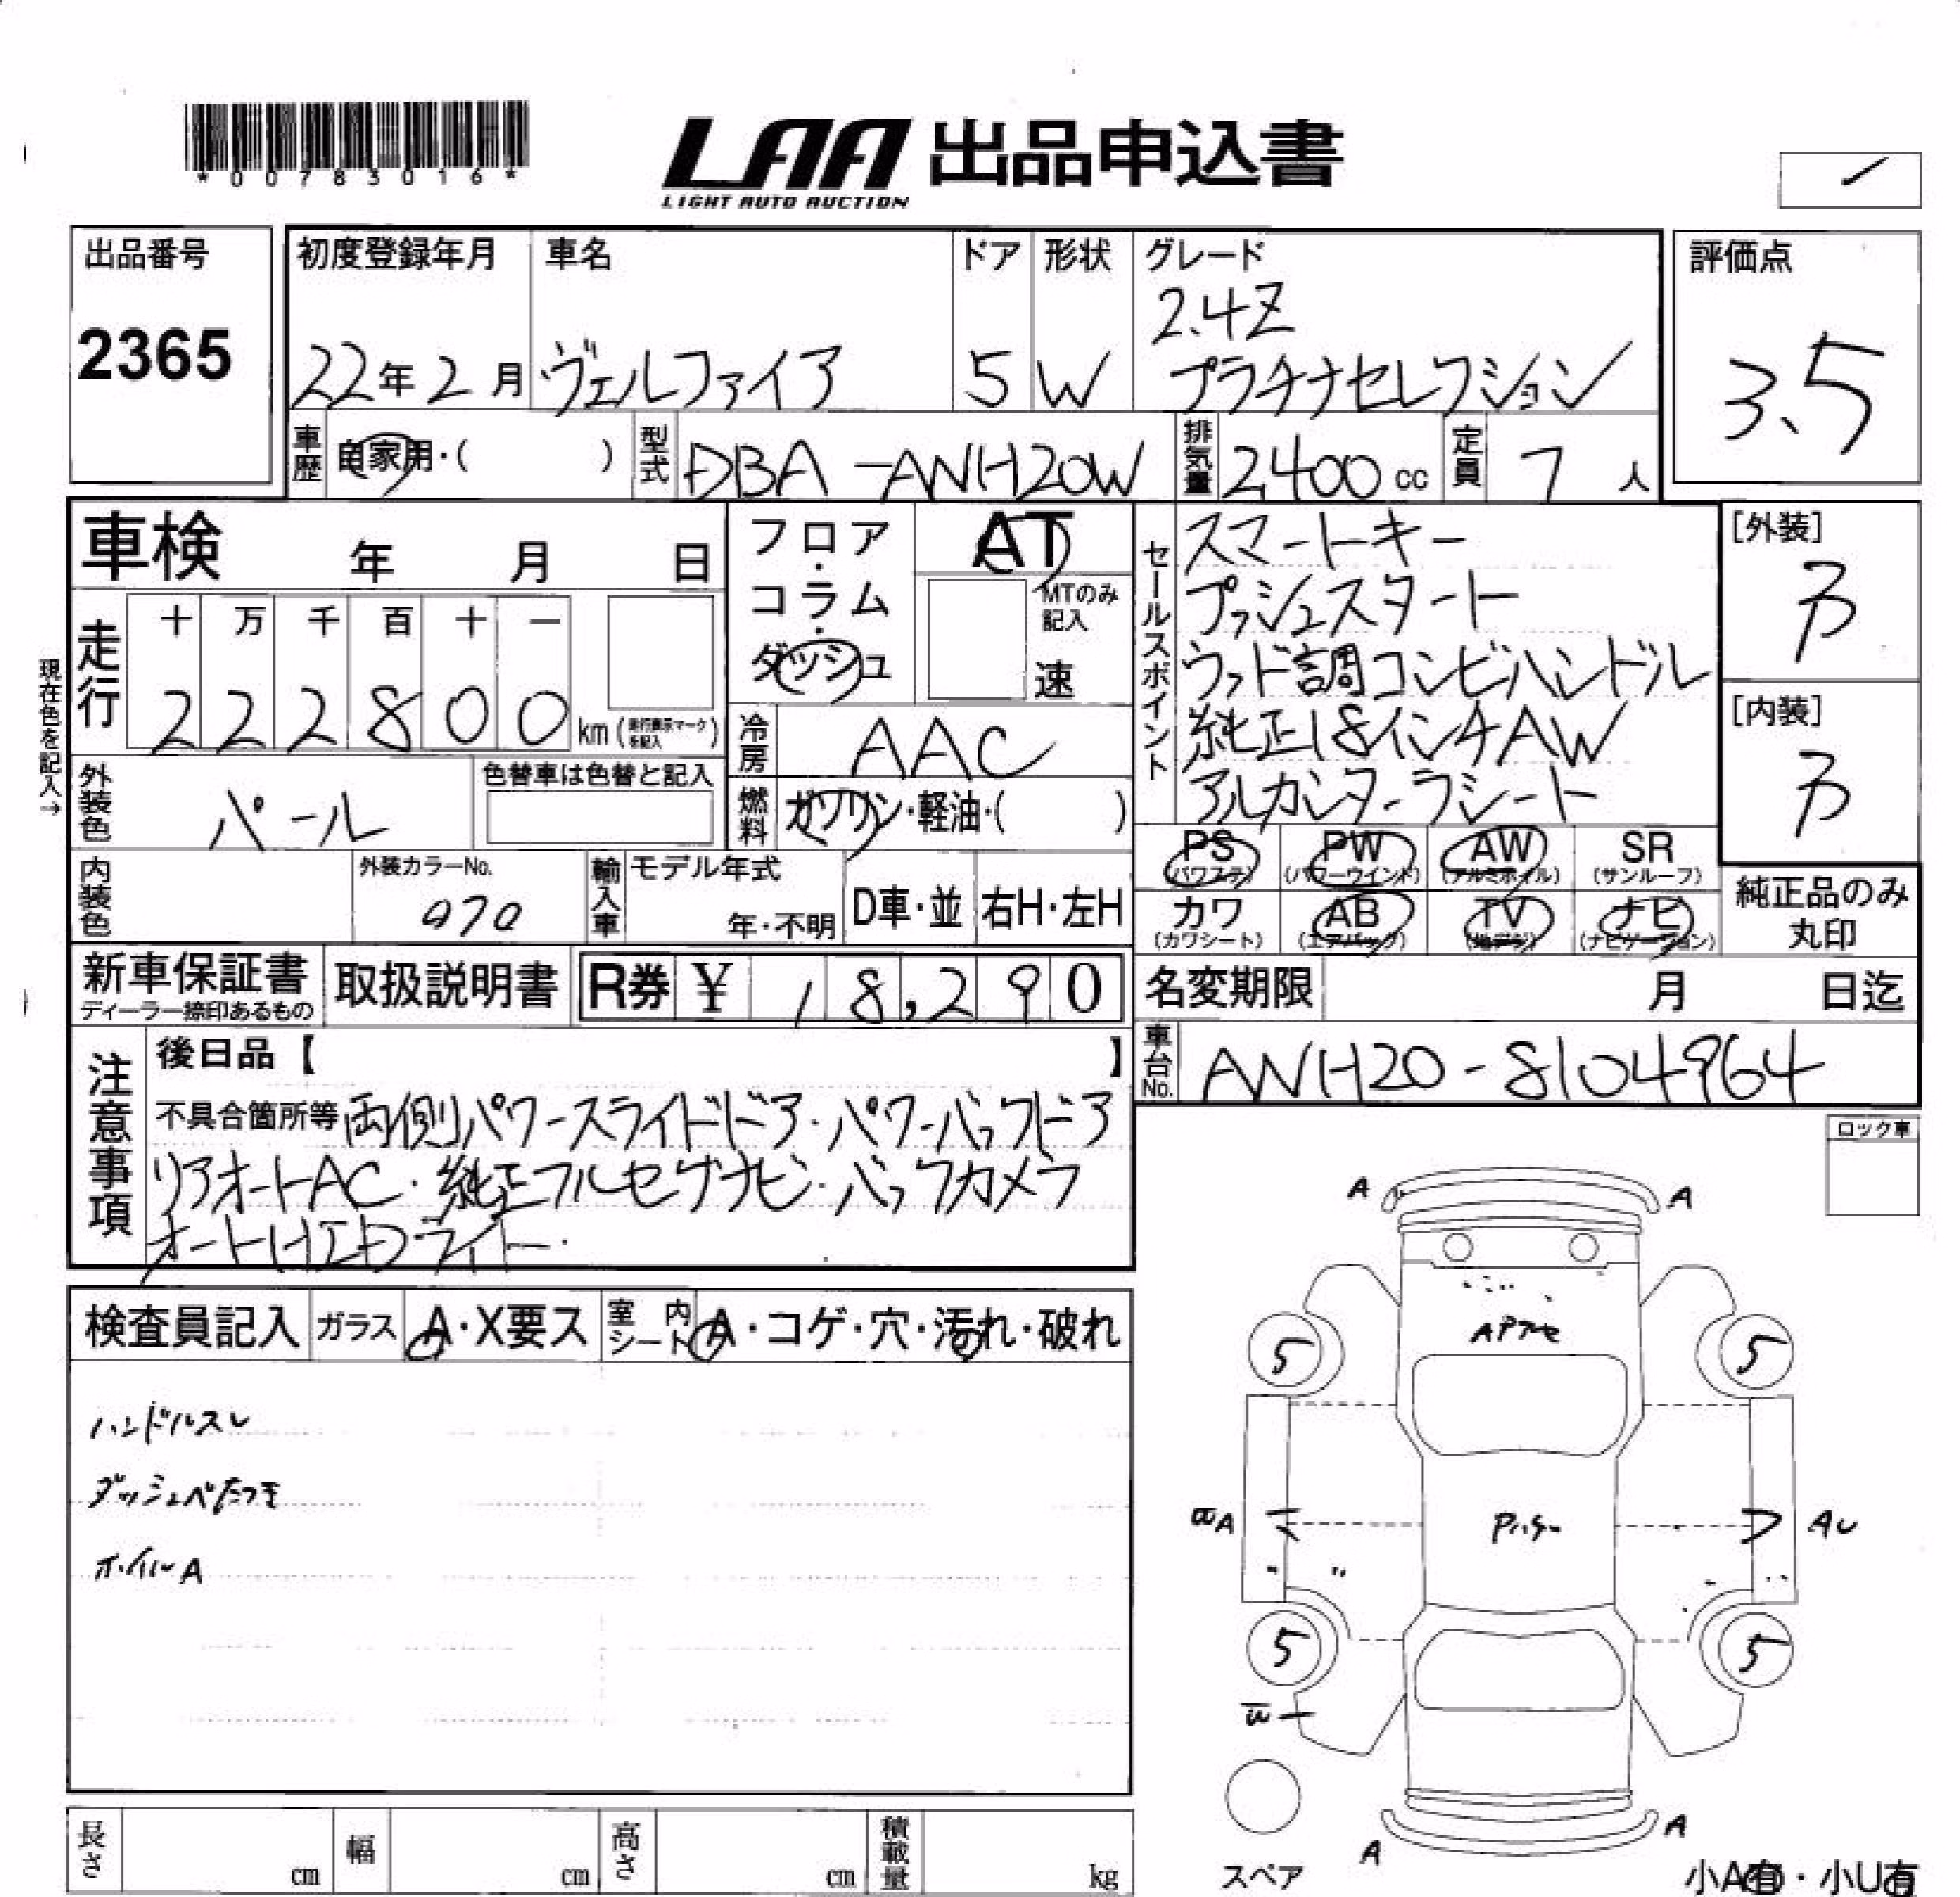 *00783016*
LAA 出品申込書
LIGHT AUTO AUCTION
出品番号
2365
初度登録年月
22年2月
車名
ヴェルファイア
ドア
5
形状
W
グレード
2.4Z
プラチナセレクション
評価点
3.5
車歴 自家用・( )
型式 DBA-ANH20W
排気量 2400 cc
定員 7 人
車検 年 月 日
フロア・コラム・ダッシュ
AT
MTのみ記入
速
セールスポイント
スマートキー
プッシュスタート
ウッド調コンビハンドル
純正18インチAW
アルカンターラシート
[外装]
[内装]
現在色を記入→
走行
十 万 千 百 十 一
2 2 2 8 0 0 km(走行表示マークを記入)
冷房 AAC
外装色 パール
色替車は色替と記入
燃料 ガソリン・軽油・( )
PS (パワステ)
PW (パワーウインド)
AW (アルミホイル)
SR (サンルーフ)
カワ (カワシート)
AB (エアバッグ)
TV (地デジ)
ナビ (ナビゲーション)
純正品のみ丸印
内装色
外装カラーNo.
070
輸入車
モデル年式
年・不明
D車・並
右H・左H
新車保証書
ディーラー捺印あるもの
取扱説明書
R券 ¥ 18,290
名変期限 月 日迄
車台No. ANH20-8104964
注意事項
後日品【 】
不具合箇所等 両側パワースライドドア・パワーバックドア
リアオートAC・純正フルセグナビ・バックカメラ
オートHIDライト・
ロック車
検査員記入
ガラス A・X要ス
室内シート A・コゲ・穴・汚れ・破れ
ハンドルスレ
ダッシュべたつき
ホイルA
A A
5 5
A
AU
5 5
A A
スペア
小A有・小U有
長さ cm
幅 cm
高さ cm
積載量 kg